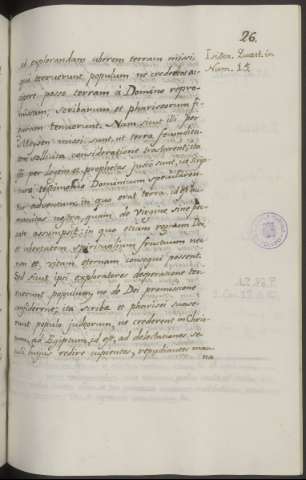 26.
ad explorandam uberem terram missi,
qui terruerunt populum ne crederet ac-
cipere posse terram à Domino repro-
missam; scribarum et phariseorum fi-
guram tenuerunt. Nam sicut illi per
Moysen missi sunt, ut terræ fecundita-
tem sollicita consideratione
illi per legem et prophetas jussi sunt, ut scrip-
turæ testimoniis Dominicum specularen-
tur adventum, in quo erat terra, id est hu-
manitas nostra, quam de Virgine sine pec-
cato assumpsit; in quo etiam regnum Dei
et ubertatem spiritualium fructuum
et vitam æternam consequi possent.
Sed sicut ipsi exploratores desperatione ter-
ruerunt populum, ne de Dei promissione
confiderent; ita scribæ et pharisei suase-
runt populo judæorum, ne crederent in Chris-
tum, ad Egiptum, id est, ad delectationes se-
culi hujus redire cupientes, repudiantes man-
na
Isidor. Quæst. in
Num. 15